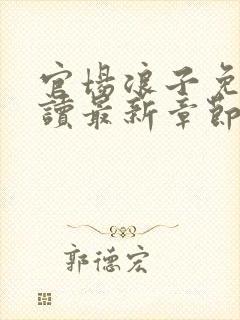 官場浪子免
讀最新章節
郭德宏